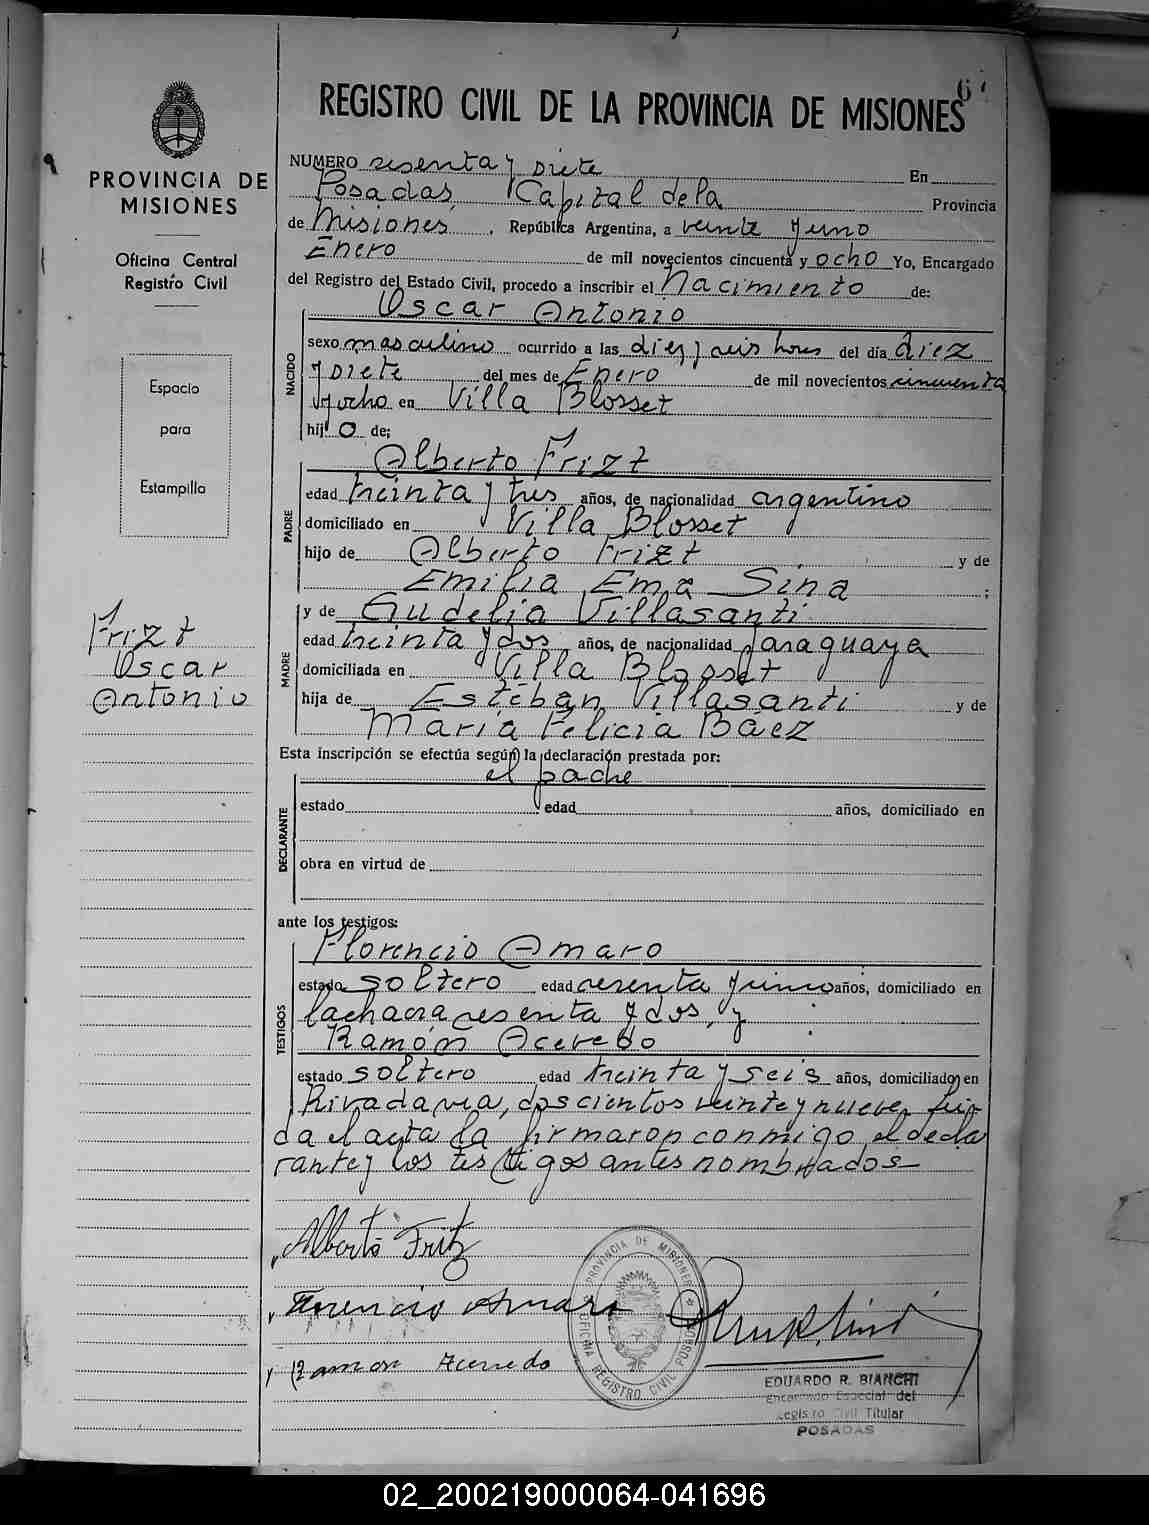 REGISTRO CIVIL DE LA PROVINCIA DE MISIONES
PROVINCIA DE
MISIONES
Oficina Central
Registro Civil
Espacio
para
Estampilla
Frizt
Oscar
Antonio
NUMERO sesenta y siete En
Posadas, Capital de la Provincia
de Misiones, República Argentina, a veinte y uno
Enero de mil novecientos cincuenta y ocho Yo, Encargado
del Registro del Estado Civil, procedo a inscribir el Nacimiento de:
Oscar Antonio
NACIDO
sexo masculino ocurrido a las diez y seis horas del día diez
y siete del mes de Enero de mil novecientos cincuenta
y ocho en Villa Blosset
hijo de;
Alberto Frizt
PADRE
edad treinta y tres años, de nacionalidad argentino
domiciliado en Villa Blosset
hijo de Alberto Frizt y de
Emilia Ema Sina ;
y de Gudelia Villasanti
MADRE
edad treinta y dos años, de nacionalidad paraguaya
domiciliada en Villa Blosset
hija de Estéban Villasanti y de
María Felicia Báez
Esta inscripción se efectúa según la declaración prestada por:
el padre
DECLARANTE
estado edad años, domiciliado en
obra en virtud de
ante los testigos:
Florencio Amaro
TESTIGOS
estado soltero edad sesenta y uno años, domiciliado en
la chacra sesenta y dos, y
Ramón Acevedo
estado soltero edad treinta y seis años, domiciliado en
Rivadavia, doscientos veinte y nueve, leí-
da el acta la firmaron conmigo el decla
rante y los testigos antes nombrados—
Alberto Fritz
Florencio Amaro
Ramon Acevedo
PROVINCIA DE MISIONES
OFICINA REGISTRO CIVIL POSADAS
EDUARDO R. BIANCHI
Encargado Especial del
Registro Civil Titular
POSADAS
02_200219000064-041696